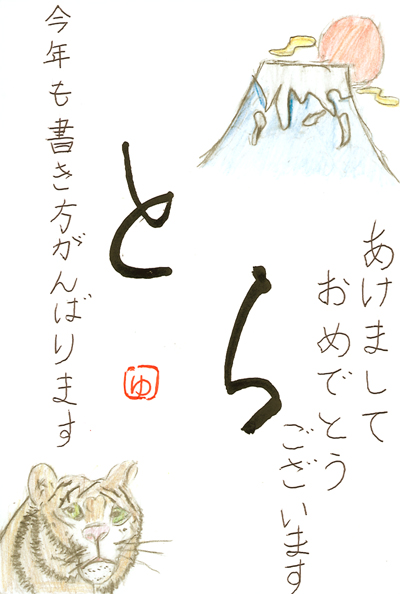 あけまして
おめでとう
ございます
とら
ゆ
今年も書き方がんばります